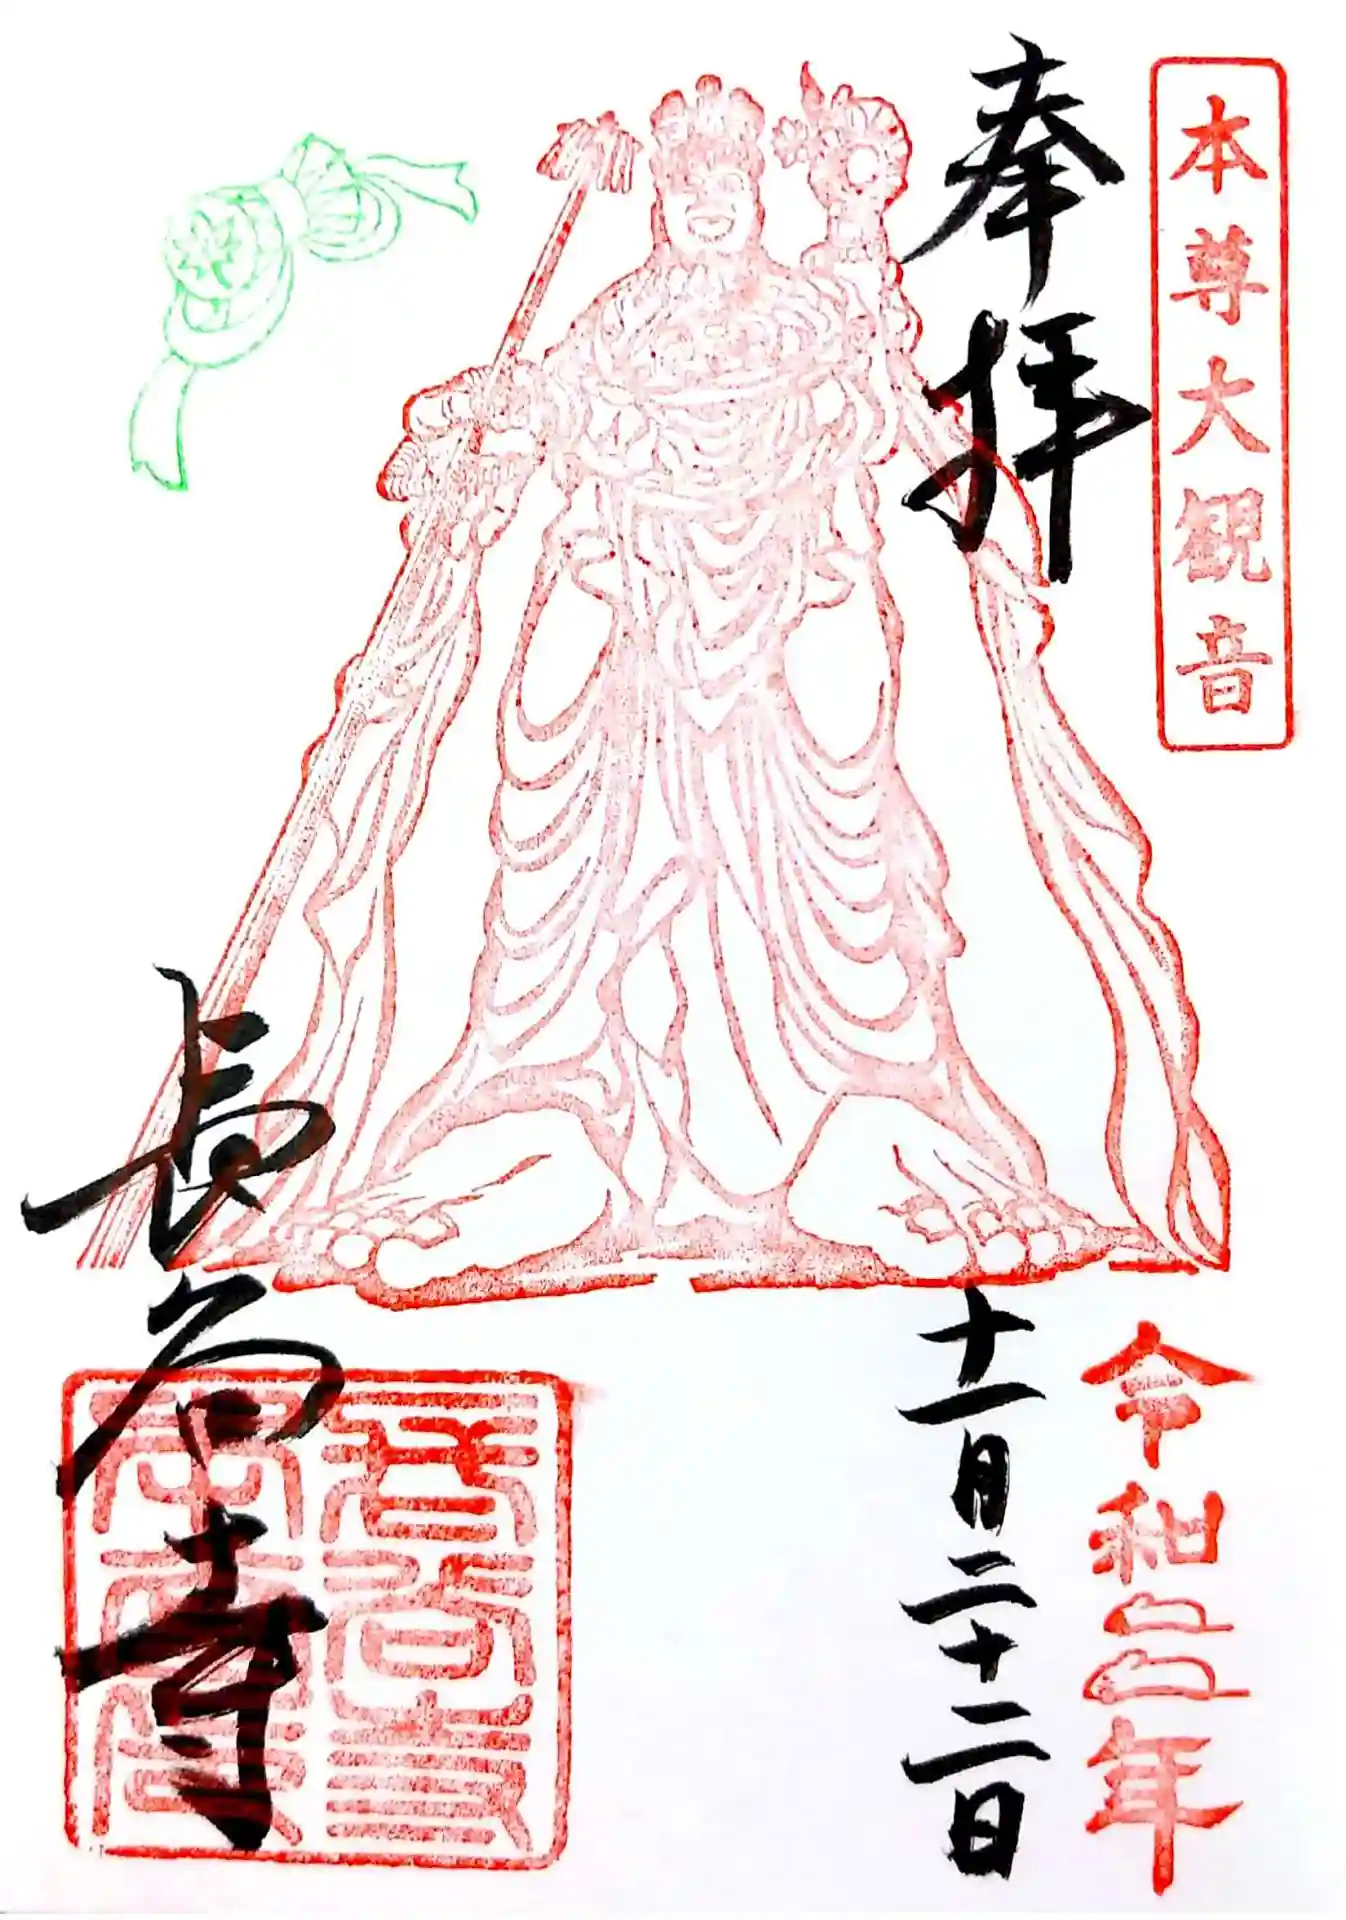 本尊大観音
奉拝
令和二年
十一月二十二日
長谷寺